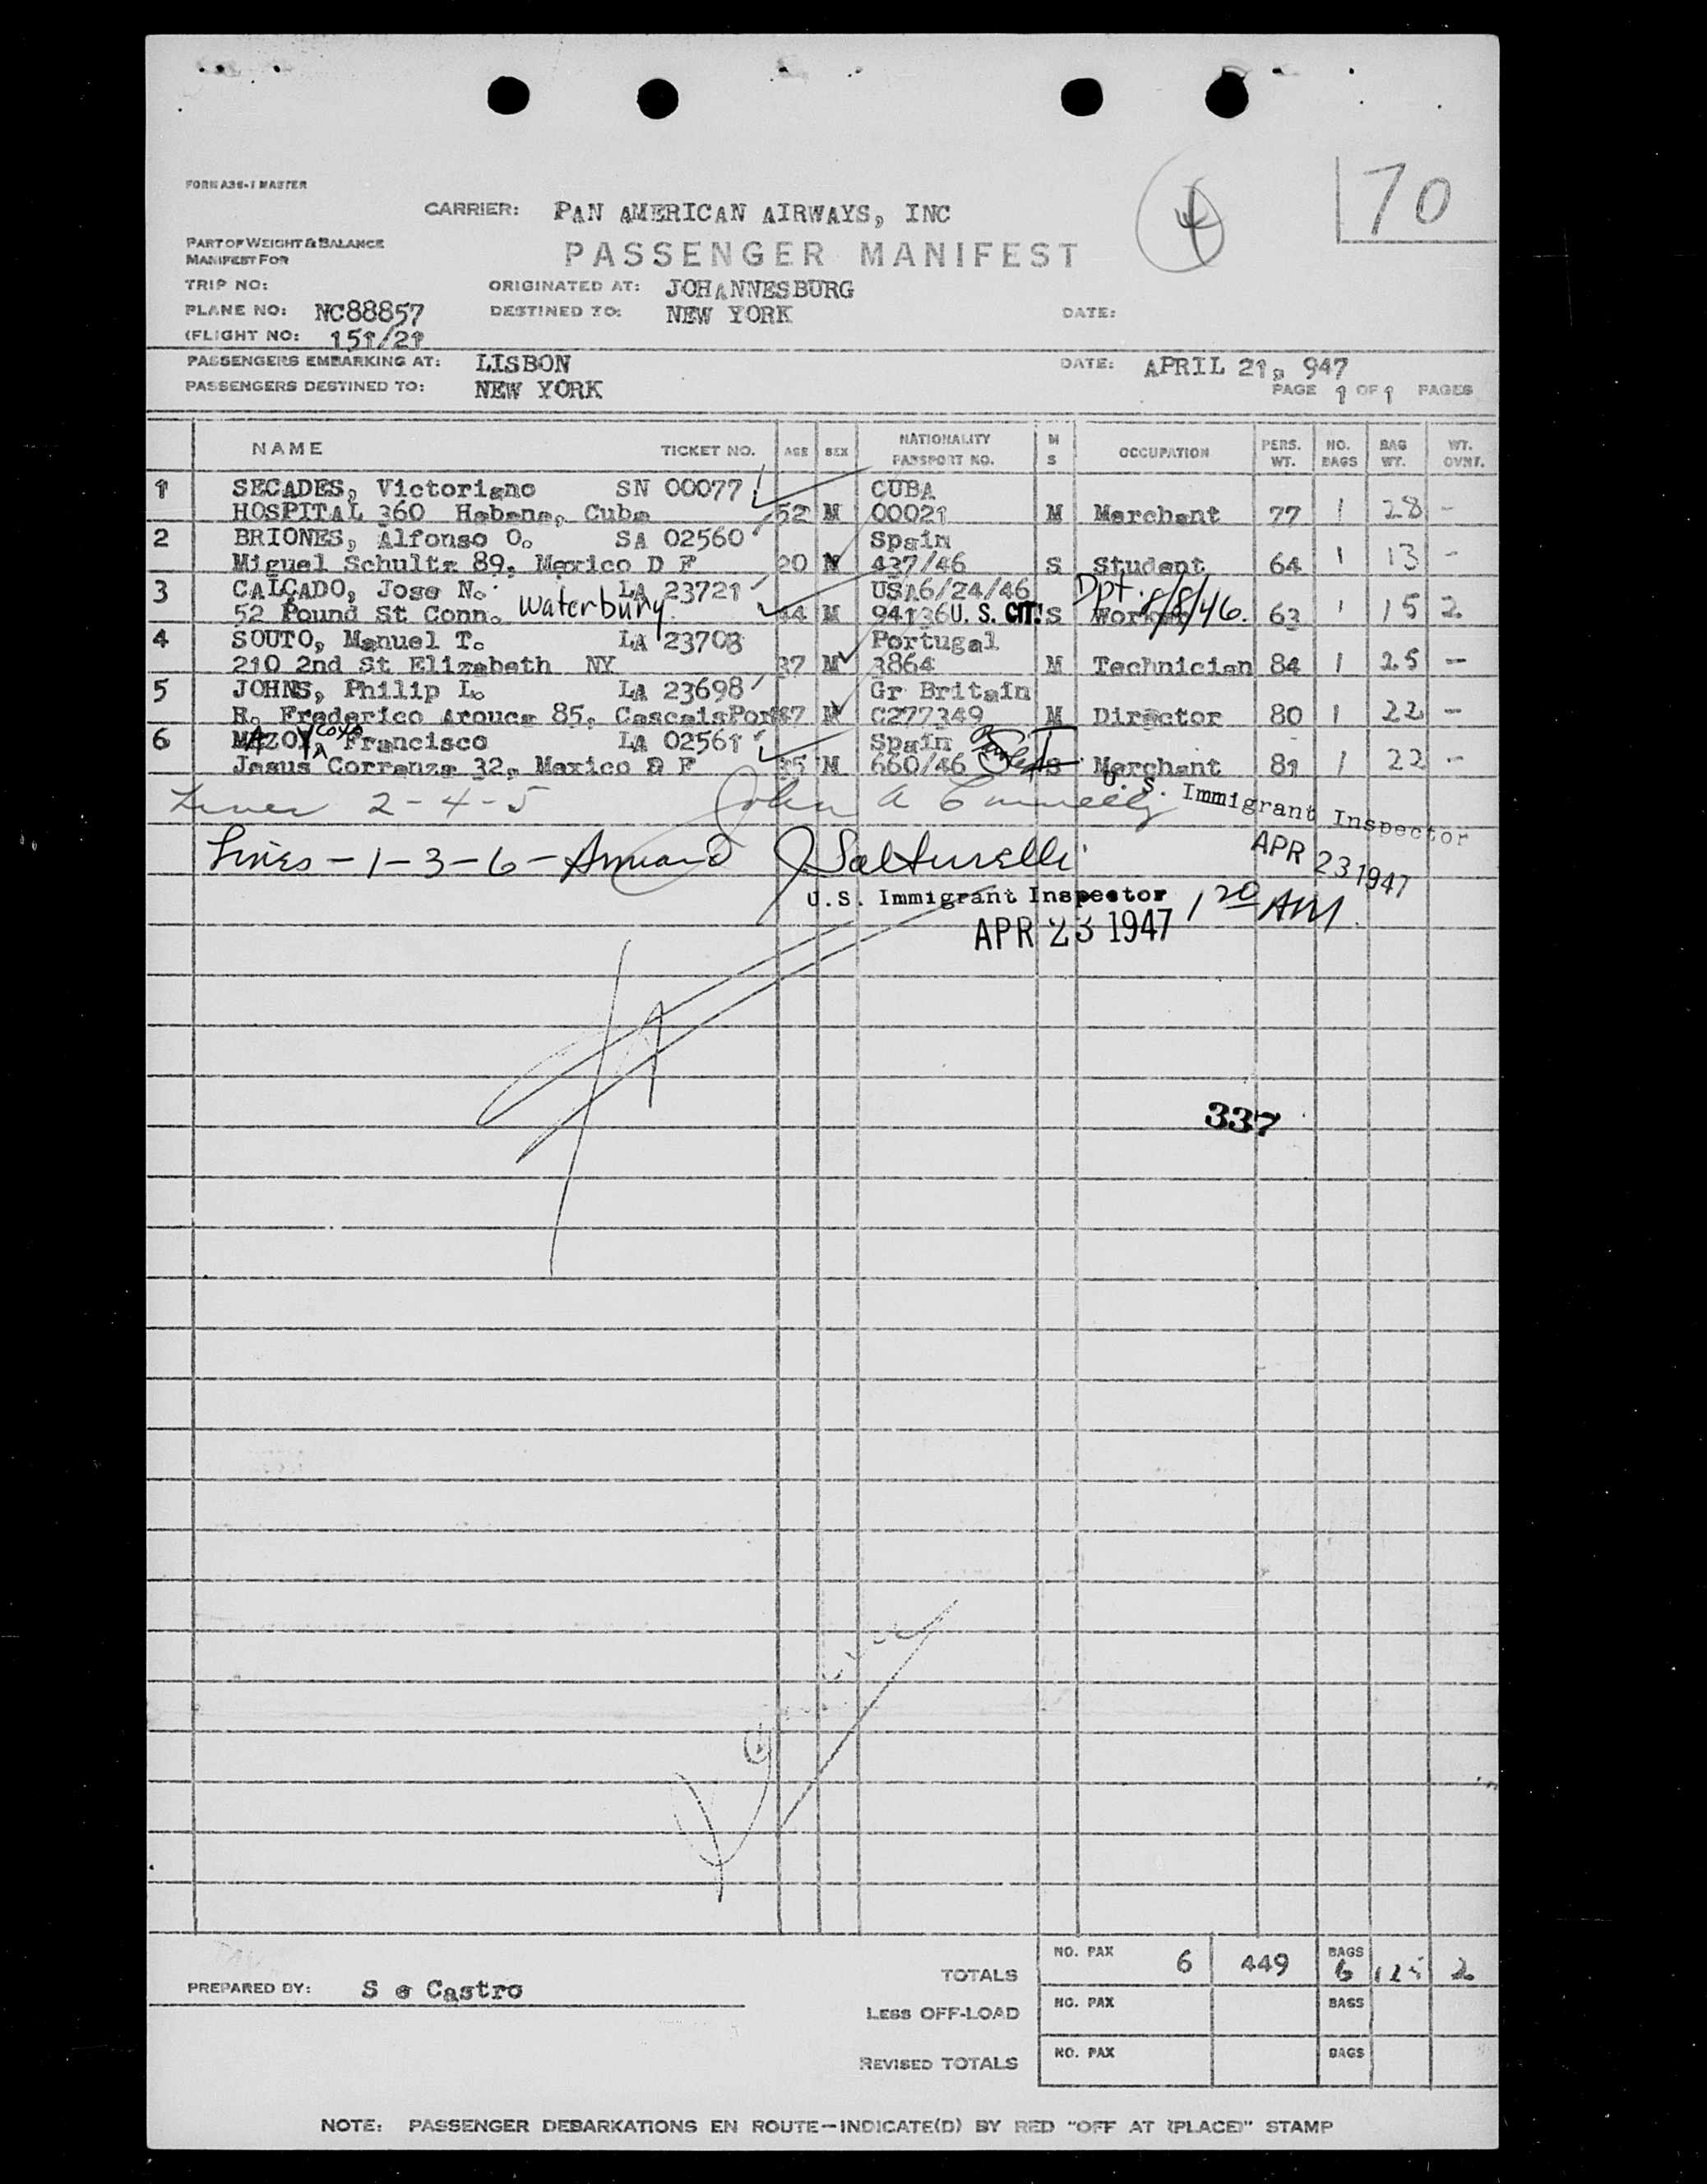 70
FORM A36-1 MASTER
CARRIER: PAN AMERICAN AIRWAYS, INC
PART OF WEIGHT & BALANCE
MANIFEST FOR
PASSENGER MANIFEST
TRIP NO: ORIGINATED AT: JOHANNESBURG
PLANE NO: NC88857 DESTINED TO: NEW YORK DATE:
(FLIGHT NO: 151/21
PASSENGERS EMBARKING AT: LISBON DATE: APRIL 21, 947
PASSENGERS DESTINED TO: NEW YORK PAGE 1 OF 1 PAGES
NAME TICKET NO. AGE SEX NATIONALITY PASSPORT NO. M S OCCUPATION PERS. WT. NO. BAGS BAG WT. WT. OVNT.
1 SECADES, Victoriano SN 00077 CUBA
HOSPITAL 360 Habana, Cuba 52 M 00021 M Merchant 77 1 28 -
2 BRIONES, Alfonso O. SA 02560 Spain
Miguel Schultz 89, Mexico D F 20 M 437/46 S Student 64 1 13 -
3 CALÇADO, Jose N. LA 23721 USA6/24/46 Dpt. 8/8/46.
52 Pound St Conn. Waterbury 44 M 94136 U. S. CIT. S Worker 63 1 15 2
4 SOUTO, Manuel T. LA 23708 Portugal
210 2nd St Elizabeth NY 37 M 3864 M Technician 84 1 25 -
5 JOHNS, Philip L. LA 23698 Gr Britain
R. Frederico Arouca 85, CascaisPort 47 M C277349 M Director 80 1 22 -
6 MAZOY, Francisco LA 02561 Spain
Jesus Corranza 32, Mexico D F 35 M 660/46 S Merchant 81 1 22 -
Lines 2-4-5 John A Connelly U. S. Immigrant Inspector
APR 23 1947
Lines - 1-3-6 - Armand J Salturelli
U.S. Immigrant Inspector 1 20 AM.
APR 23 1947
337
TOTALS NO. PAX 6 449 BAGS 6 125 2
PREPARED BY: S e Castro
LESS OFF-LOAD NO. PAX BAGS
REVISED TOTALS NO. PAX BAGS
NOTE: PASSENGER DEBARKATIONS EN ROUTE—INDICATE(D) BY RED "OFF AT (PLACE)" STAMP